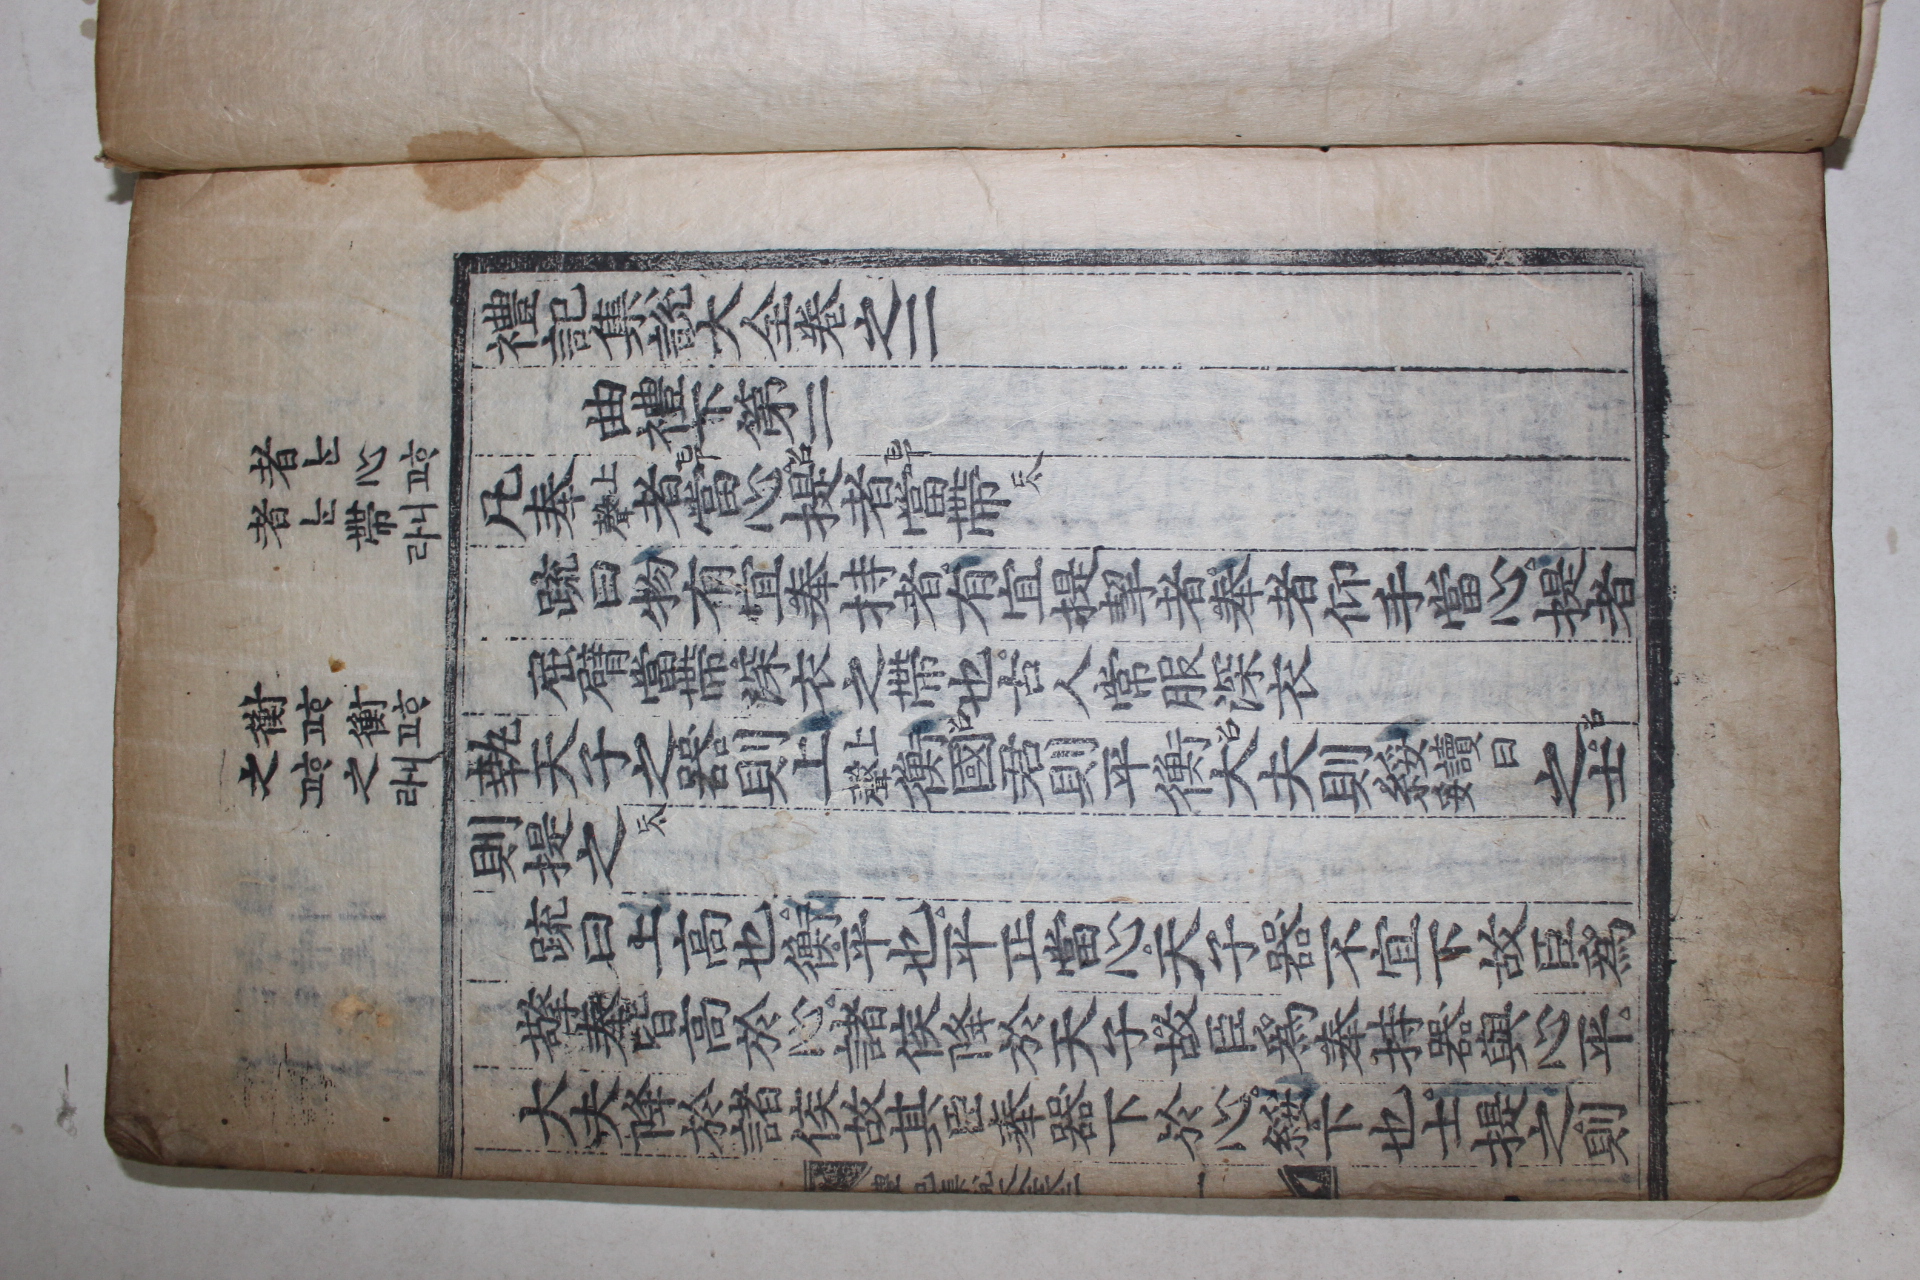 禮記集說大全卷之二
曲禮下第二
凡奉上聲者當心提者當帶
疏曰物有宜奉持者有宜提挈者奉者仰手當心提者
屈臂當帶深衣之帶也古人常服深衣
執天子之器則上上聲衡國君則平衡大夫則綏讀曰妥之士
則提之
疏曰上高也衡平也平正當心天子器不宜下故臣爲
擎奉皆高於心諸侯降於天子故臣爲奉持器與心平
大夫降於諸侯故其臣奉器下於心綏下也士提之則
者 心
者 帶
衡 衡
之 之